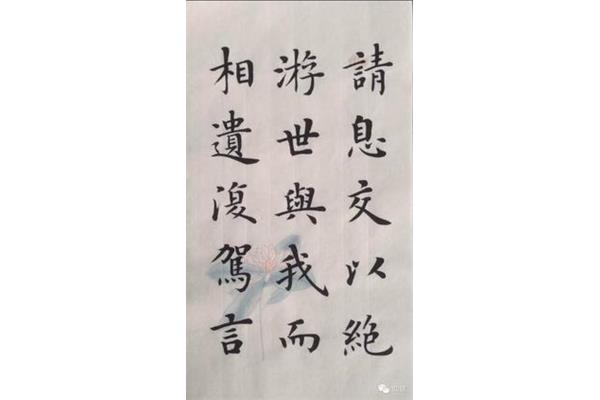 請息交以絕
游世與我而
相遺復駕言